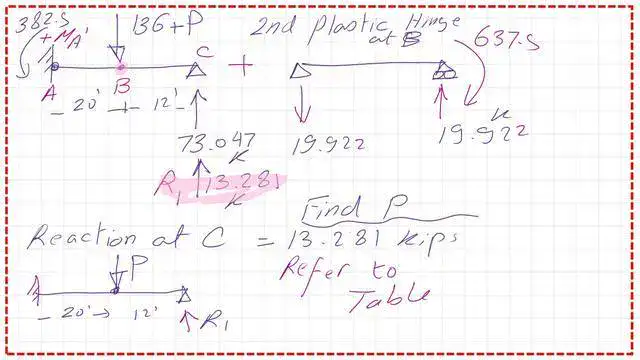 382.5 136+P 2nd Plastic Hinge
+ MA' C + at B 637.5
A B
- 20' 12'
73.047 K 19.922 19.922 K
R1 13.281 K
Find P
Reaction at C = 13.281 kips
P Refer to
- 20' 12' R1 Table